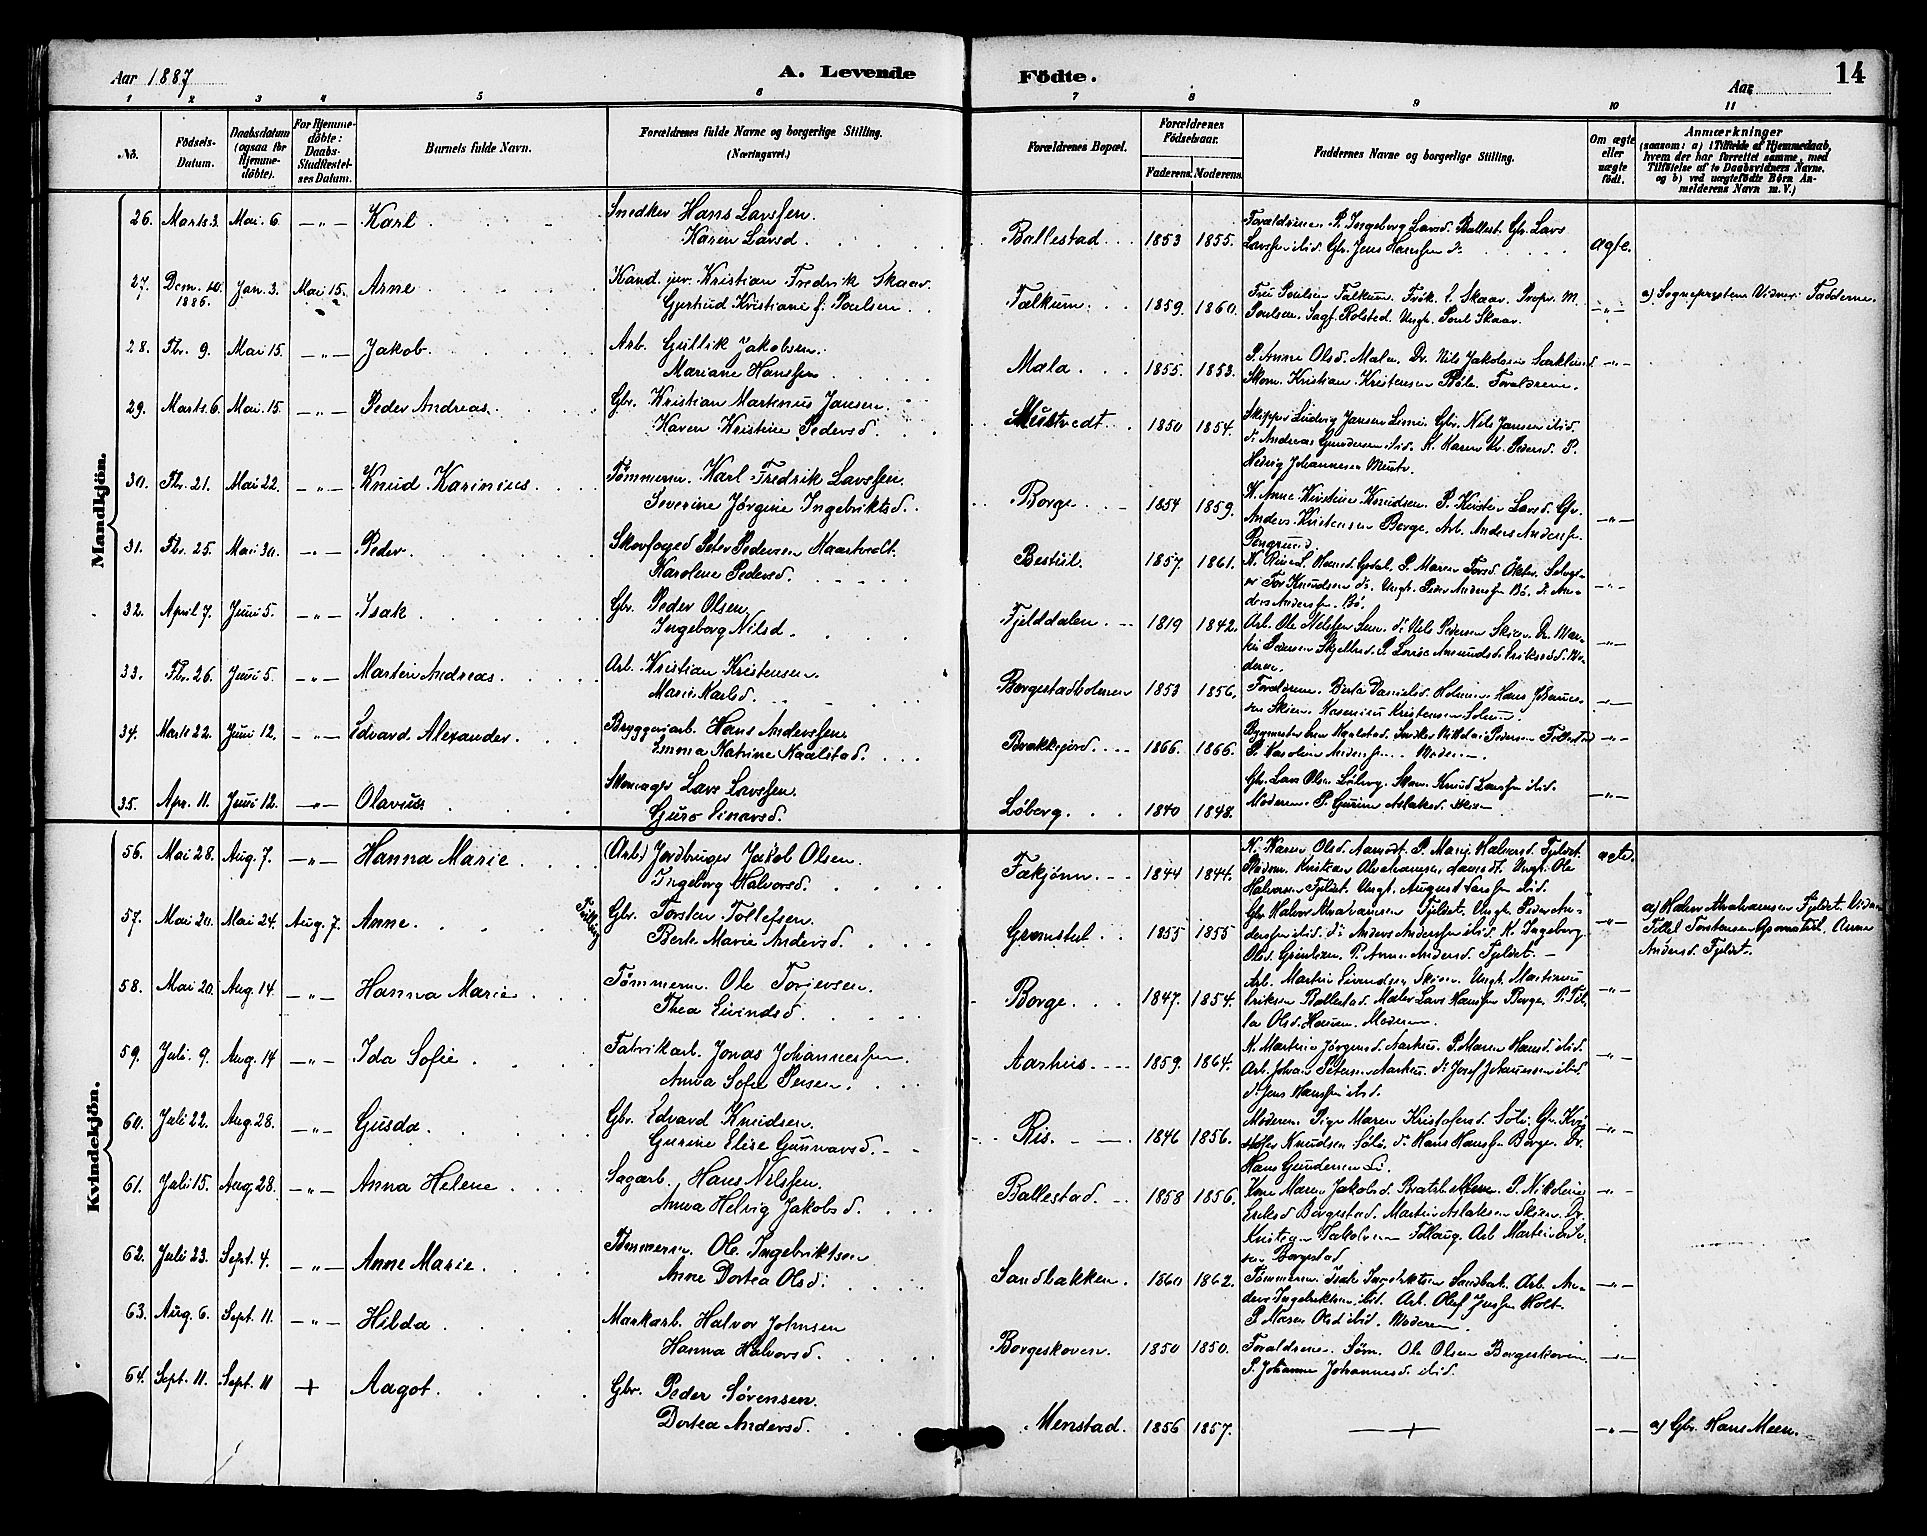 Aar 1887
A. Levende
Födte.
Aar
14
1 2 3 4 5 6 7 8 9 10 11
No.
Födsels-Datum.
Daabsdatum (ogsaa for Hjemmedöbte).
For Hjemmedöbte: Daabs-Stadfæstelses Datum.
Barnets fulde Navn.
Forældrenes fulde Navne og borgerlige Stilling.
(Næringsvei.)
Forældrenes Bopæl.
Forældrenes Födselsaar.
Faderens. Moderens.
Faddernes Navne og borgerlige Stilling.
Om ægte eller uægte födt.
Anmærkninger
(saasom: a) i Tilfælde af Hjemmedaab, hvem der har forrettet samme, med Tilföielse af to Daabsvidners Navne, og b) ved uægtefödte Börn Anmelderens Navn m. V.)
Mandkjön.
26. Marts 3. Mai 6. —„— Karl. Snedker Hans Larssen.
Karen Larsd. Ballestad. 1853 1855. Forældrene. P. Ingeborg Larsd. Ballest. Gbr. Lars
Larssen ibid. Gbr. Jens Hanssen d: ægte.
27. Decm. 10. 1886. Jan. 3. Mai 15. Arne Kand. jur. Kristian Fredrik Skaar.
Gjertrud Kristiane f. Poulsen. Falkum. 1859. 1860. Fru Poulsen Falkum. Frøk. E. Skaar. Propr. M.
Poulsen. Sagf. Rolstad. Ungk. Poul Skaar. —„— a) Sognepresten. Vidner: Fadderne.
28. Fbr. 9. Mai 15. —„— Jakob. Arb. Gullik Jakobsen.
Mariane Hanssen Mæla. 1855. 1853. P. Anne Olsd. Mæla. Dr. Nils Jakobsen
Skom. Kristian Kristensen Bøle. Forældrene. —„—
29. Marts 6. Mai. 15. —„— Peder Andreas. Gbr. Kristian Martinus Jansen.
Karen Kristine Pedersd. Mustvedt. 1850 1854. Skipper Ludvig Jansen Gbr. Nils Jansen ibid.
d: Andreas Gundersen ibid. K. Karen Kr. Pedersd. P.
Hedvig Johannesen Mustv.
30. Fbr. 21. Mai 22. —„— Knud Karinius. Tømmerm. Karl Fredrik Larssen.
Severine Jørgine Ingebriktsd. Borge. 1854 1859. K. Anne Kirstine Knudsen. P. Kirsten Larsd. Gbr.
Anders Kristensen Borge. Arb. Anders Anderssen
—„—
31. Fbr. 25. Mai 30. —„— Peder. Skovfoged Peter Pedersen Kaartvedt.
Karolene Pedersd. Bestul. 1857. 1861. P. Maren Torsd. Økter.
Tor Knudsen d: Ungk. Peder Anderssen Bø. d: An-
ders Anderssen. Bø. —„—
32. April 7. Juni 5. —„— Isak. Gbr. Peder Olsen.
Ingeborg Nilsd. Fjelddalen. 1819 1842. Arb. Ole Nilssen d: Nils Pedersen Skien.
P. Lovise Amundsd. Mo-
deren. —„—
33. Fbr. 26. Juni 5. —„— Martin Andreas. Arb. Kristian Kristensen.
Marie Karlsd. Borgestadholmen 1853 1856. Forældrene. Berta Danielsd. Holmen. Hans Johannes-
sen Skien. Kristensen Solum. —„—
34. Marts 22. Juni 12. —„— Edvard Alexander. Bryggeriarb. Hans Anderssen
Emma Katrine Kaalstad. Brakkefjord. 1866. 1866. Bygmester Kaalstad. Snedker Nikolai Pedersen
P. Karoline Anderssen. Moderen. —„—
35. Apr. 11. Juni 12. —„— Olavus Skomager Lars Larssen.
Guro Einarsd. Løberg. 1840 1848. Gbr. Lars Olsen Løberg. Skom. Knud Larssen ibid.
Moderen. P. Gurine Aslaksd. Skien —„—
Kvindekjön.
56. Mai 28. Aug. 7. —„— Hanna Marie (Arb.) Jordbruger Jakob Olsen.
Ingeborg Halvorsd. Fækjønn. 1844 1844. K. Karen Olsd. P. Marie Halvorsd. Fjeldet.
Kristian Abrahamsen Ungk. Ole
Halvorsen Fjeldet. Ungk. August Larssen ibid. ægte.
57. Mai 20. Mai 24. Aug. 7. Anne. Tvilling Gbr. Torsten Tollefsen.
Berte Marie Andersd. Gromstul. 1855 1855 Gbr. Halvor Abrahamsen Fjeldet. Ungk. Peder An-
derssen ibid. d: Anders Anderssen ibid. K. Ingeborg
Olsd. P. Anne Andersd. Fjeldet. —„— a) Halvor Abrahamsen Fjeldet. Vidner
Tollef Torstensen Anne
Andersd. Fjeldet.
58. Mai 20. Aug. 14. —„— Hanna Marie Tømmerm. Ole Torjersen.
Thea Eivindsd. Borge. 1847. 1854. Arb. Martin Eivindsen Skien. Ungk. Martinus
Eriksen Ballestad. Maler Lars Hanssen Borge. P.
Olsd. Moderen. —„—
59. Juli 9. Aug. 14 —„— Ida Sofie. Fabrikarb. Jonas Johannessen.
Anna Sofie Persen. Aarhus. 1859. 1864. K. Martine Jørgensd. Aarhus. P. Maren Hansd. ibid.
Arb. Johan Petersen Aarhus. d: Josef Johannessen ibid
d: Jens Hanssen ibid. —„—
60. Juli 22. Aug. 28. —„— Gusda. Gbr. Edvard Knudsen.
Gurine Elise Gunnarsd. Ris. 1846 1856. Moderen. Pige Maren Kristofersd. Soli. Gbr. Kri-
stofer Knudsen Soli. d: Hans Hanssen Borge. Dr.
Hans Gundersen Li. —„—
61. Juli 15. Aug. 28. —„— Anna Helene Sagarb. Hans Nilssen.
Anna Helvig Jakobsd. Ballestad. 1858 1856. Kone Maren Jakobsd. P. Nikoline
Eriksd. Borgestad. Martin Aslaksen Skien. Dr.
Kristian Jakobsen Follaug. Arb. Martin
Borgestad. —„—
62. Juli 23. Sept. 4. —„— Anne Marie. Tømmerm. Ole Ingebriktsen
Anne Dortea Olsd. Sandbakken. 1860 1862. Tømmerm. Isak Ingebriktsen Sandbak. Arb. An-
ders Ingebriktsen ibid. Arb. Olef Jenssen Holt.
P. Maren Olsd ibid. Moderen. —„—
63. Aug. 6. Sept. 11. —„— Hilda. Markarb. Halvor Johnsen
Hanna Halvorsd. Borgeskoven. 1850 1850. Forældrene. Søm. Ole Olsen Borgeskoven.
P. Johanne Johannesd. ibid. —„—
64. Sept. 11. Sept. 11 + Aagot. Gbr. Peder Sørensen.
Dortea Andersd. Menstad. 1856 1857. —+— —„— a) Gbr. Hans Meen.